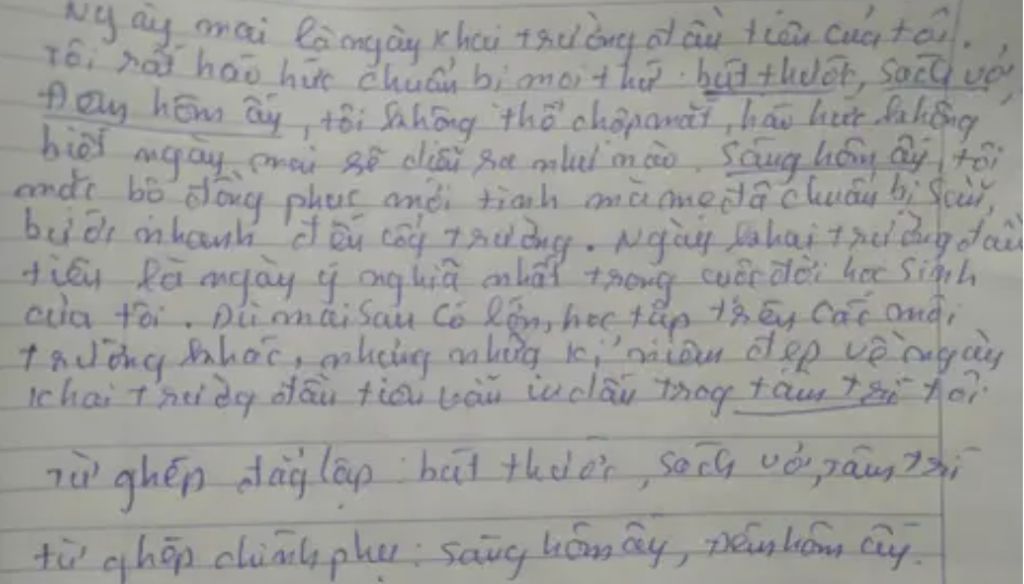 Ngày mai là ngày khai trường đầu tiên của tôi.
Tôi rất háo hức chuẩn bị mọi thứ: bút thước, sách vở,
Đêm hôm ấy, tôi không thể chợp mắt, háo hức không
biết ngày mai sẽ diễn ra như nào. Sáng hôm ấy, tôi
mặc bộ đồng phục mới tinh mà mẹ đã chuẩn bị sẵn,
bước nhanh đến cổng trường. Ngày khai trường đầu
tiên là ngày ý nghĩa nhất trong cuộc đời học sinh
của tôi. Dù mai sau có lớn, học tập trên các mái
trường khác, nhưng những kỉ niệm đẹp về ngày
khai trường đầu tiên vẫn in dấu trog tâm trí tôi.
Từ ghép đẳg lập: bút thước, sách vở, tâm trí
từ ghép chính phụ: sáng hôm ấy, đêm hôm ấy.